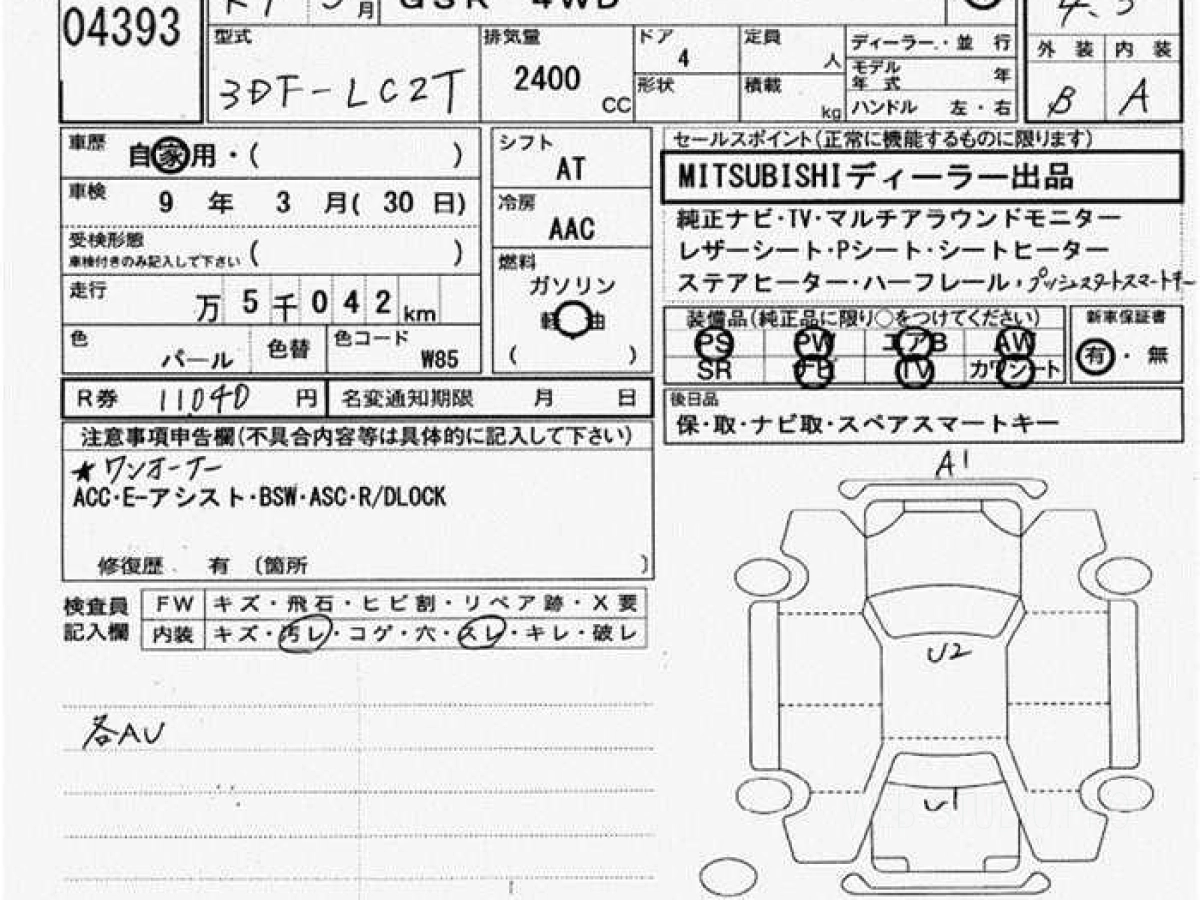 04393
GSR 4WD
月
4.5
型式
3DF-LC2T
排気量
2400
CC
ドア
4
形状
定員
人
積載
kg
ディーラー・並 行
モデル
年 式
年
ハンドル 左・右
外 装
内 装
B
A
車歴
自家用・( )
車検
9 年 3 月( 30 日)
受検形態
車検付きのみ記入して下さい
( )
走行
万 5 千 0 4 2 km
色
パール
色替
色コード
W85
シフト
AT
冷房
AAC
燃料
ガソリン
軽 油
( )
セールスポイント(正常に機能するものに限ります)
MITSUBISHIディーラー出品
純正ナビ・TV・マルチアラウンドモニター
レザーシート・Pシート・シートヒーター
ステアヒーター・ハーフレール・プッシュスタートスマートキー
装備品(純正品に限り○をつけてください)
PS PW エアB AW
SR ナビ TV カワシート
新車保証書
有・無
R券
11040
円
名変通知期限
月
日
後日品
保・取・ナビ取・スペアスマートキー
注意事項申告欄(不具合内容等は具体的に記入して下さい)
★ワンオーナー
ACC・E-アシスト・BSW・ASC・R/DLOCK
修復歴 有 〔箇所 〕
検査員
記入欄
FW キズ・飛石・ヒビ割・リペア跡・X要
内装 キズ・汚レ・コゲ・穴・スレ・キレ・破レ
各AU
A1
U2
U1